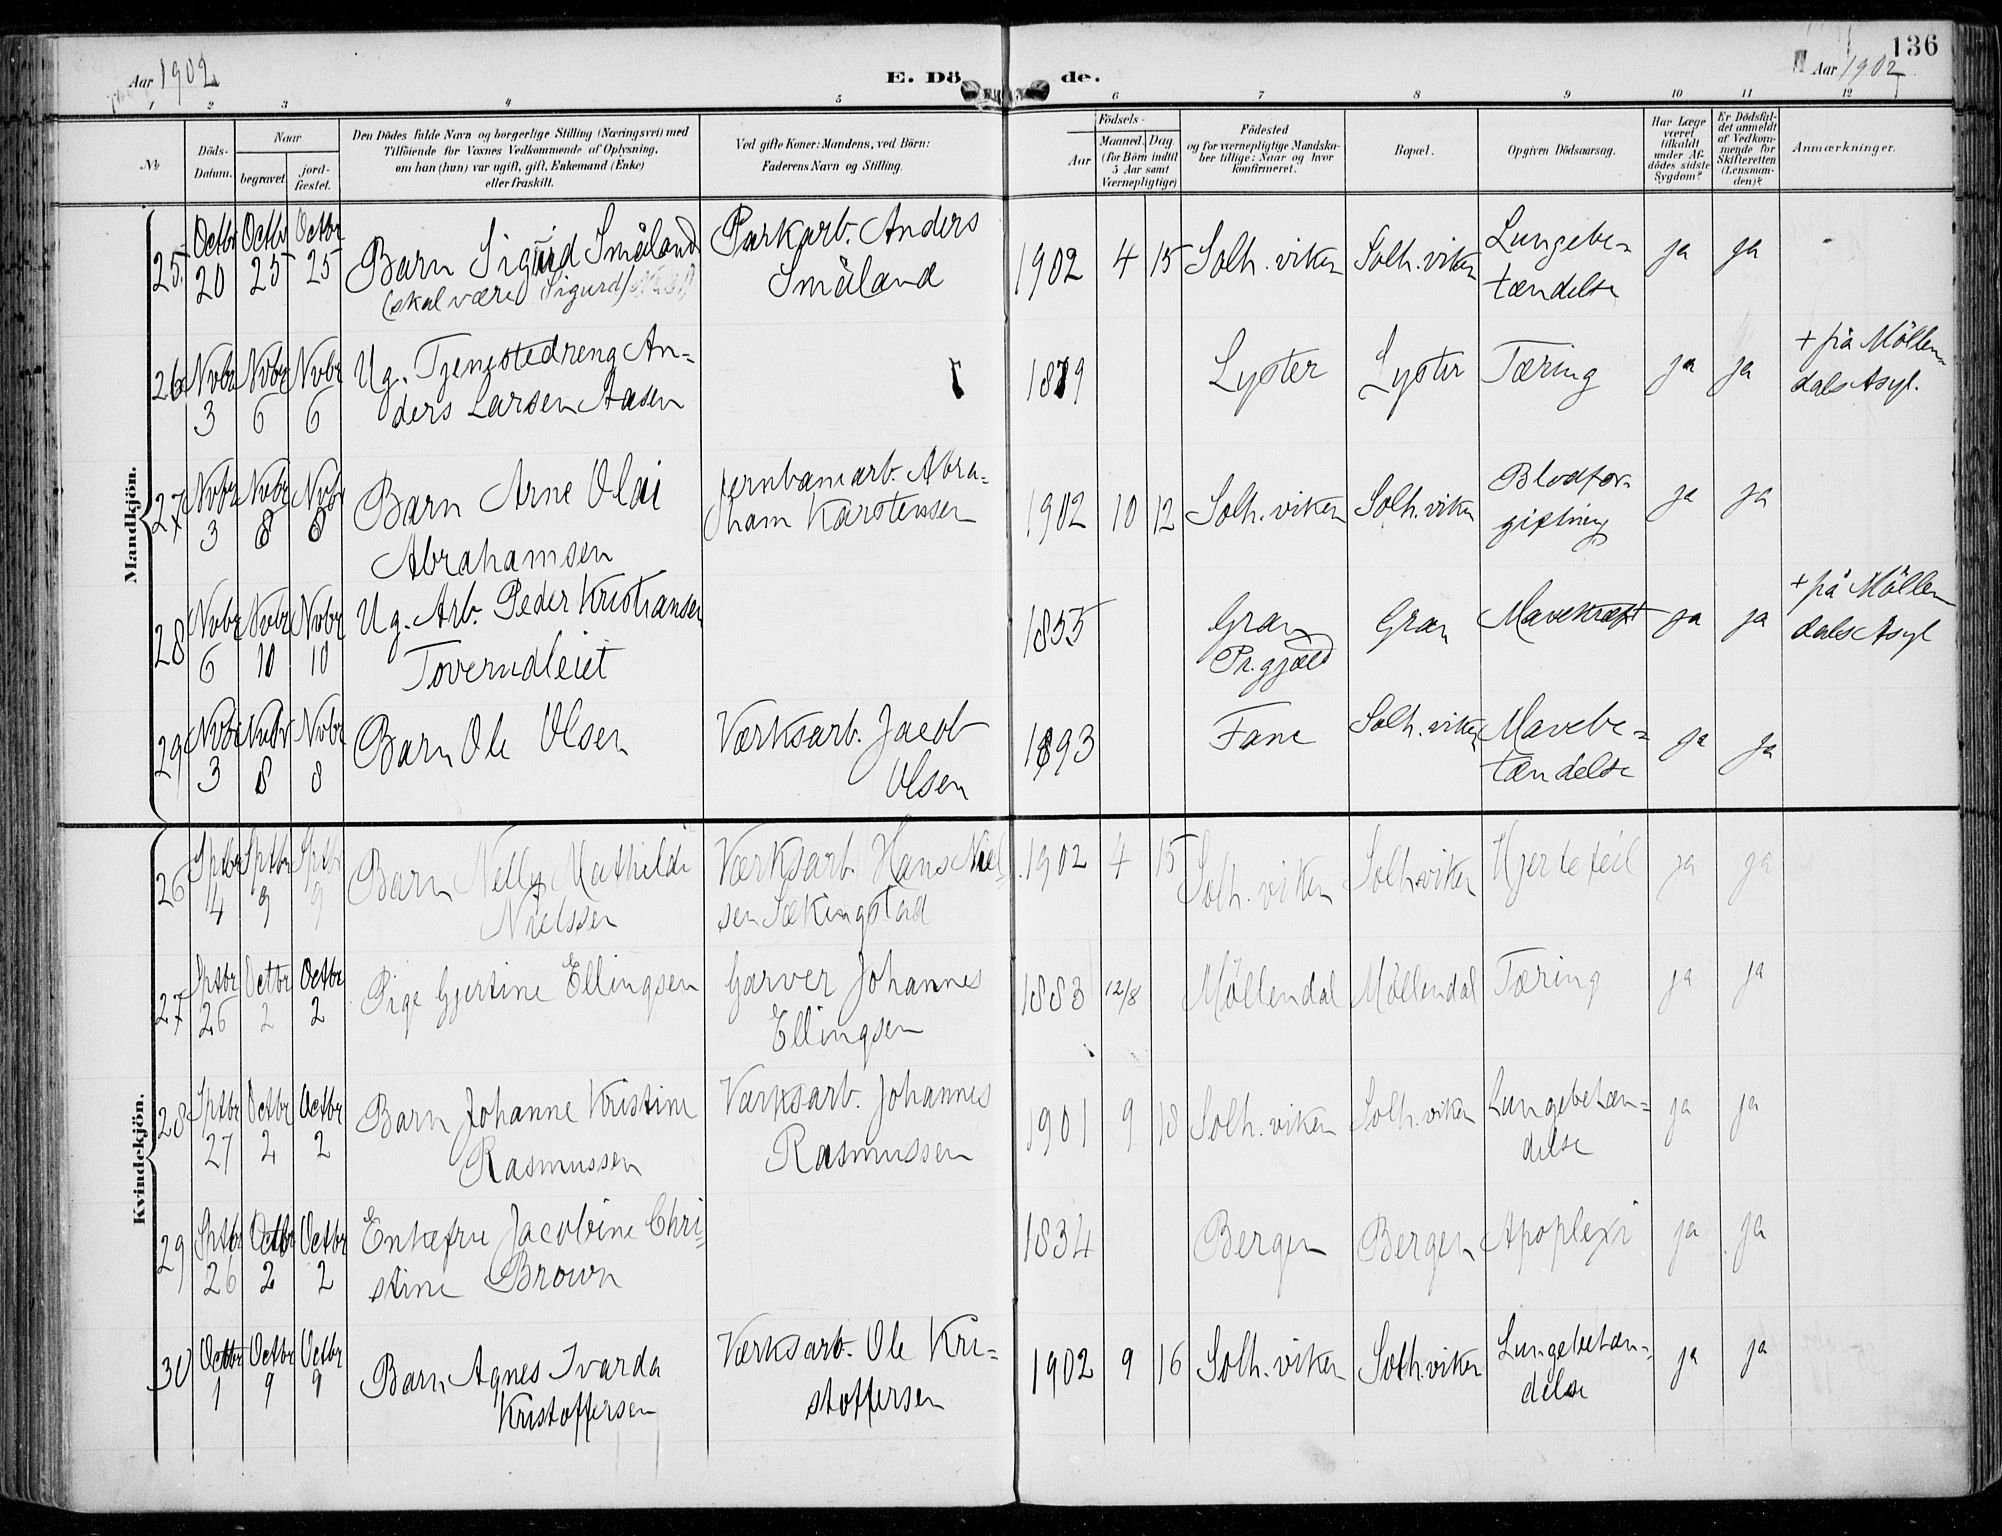 136
Aar 1902
E. Dö de.
Aar 1902
1 2 3 4 5 6 7 8 9 10 11 12
No
Döds-
Datum.
Naar
begravet
jord-
fæstet.
Den Dödes fulde Navn og borgerlige Stilling (Næringsvei) med
Tilföiende for Voxnes Vedkommende af Oplysning,
om han (hun) var ugift, gift, Enkemand (Enke)
eller fraskilt.
Ved gifte Koner: Mandens, ved Börn:
Faderens Navn og Stilling.
Födsels-
Aar
Maaned. Dag
(for Börn indtil
5 Aar samt
Værnepligtige)
Födested
og for værnepligtige Mandska-
ber tillige: Naar og hvor
konfirmeret.
Bopæl.
Opgiven Dödsaarsag.
Har Læge
været
tilkaldt
under Af-
dödes sidste
Sygdom?
Er Dödsfal-
det anmeldt
af Vedkom-
mende for
Skifteretten
(Lensman-
den)?
Anmærkninger.
Mandkjön.
25 Octbr 20 Octbr 25 Octbr 25 Barn Sigurd Småland Parkarb. Anders
(skal være Sigurd) Småland
1902 4 15 Solh. viken Solh. viken Lungebe-
tændelse ja ja
26 Nvbr 3 Nvbr 6 Nvbr 6 Ug. Tjenestedreng An-
ders Larsen Aasen
1879 Lyster Lyster Tæring ja ja + på Möllen-
dals Asyl.
27 Nvbr 3 Nvbr 8 Nvbr 8 Barn Arne Olai
Abrahamsen
Jernbanearb. Abra-
ham Karstensen
1902 10 12 Solh. viken Solh. viken Blodfor-
giftning ja ja
28 Nvbr 6 Nvbr 10 Nvbr 10 Ug. Arb. Peder Kristiansen
1855 Gran
Pr.gjæld Gran Mavekræft ja ja + på Möllen
dals Asyl
29 Nvbr 3 Nvbr 8 Nvbr 8 Barn Ole Olsen Værksarb. Jacob
Olsen
1893 Fane Solh. viken Mavebe-
tændelse ja ja
Kvindekjön.
26 Sptbr 4 Sptbr 9 Sptbr 9 Barn Nelly Mathilde
Nielssen
Værksarb. Hans Niel-
sen Sækingstad
1902 4 15 Solh. viken Solh. viken Hjertefeil ja ja
27 Sptbr 26 Octbr 2 Octbr 2 Pige Gjertine Ellingsen Garver Johannes
Ellingsen
1883 12/8 Möllendal Möllendal Tæring ja ja
28 Sptbr 27 Octbr 2 Octbr 2 Barn Johanne Kristine
Rasmussen
Værksarb. Johannes
Rasmussen
1901 9 18 Solh. viken Solh. viken Lungebetæn-
delse ja ja
29 Sptbr 26 Octbr 2 Octbr 2 Enkefru Jacobine Chri-
stine Brown
1834 Bergen Bergen Apoplexi ja ja
30 Octbr 1 Octbr 9 Octbr 9 Barn Agnes Ivarda
Kristoffersen
Værksarb. Ole Kri-
stoffersen
1902 9 16 Solh. viken Solh. viken Lungebetæn-
delse ja ja